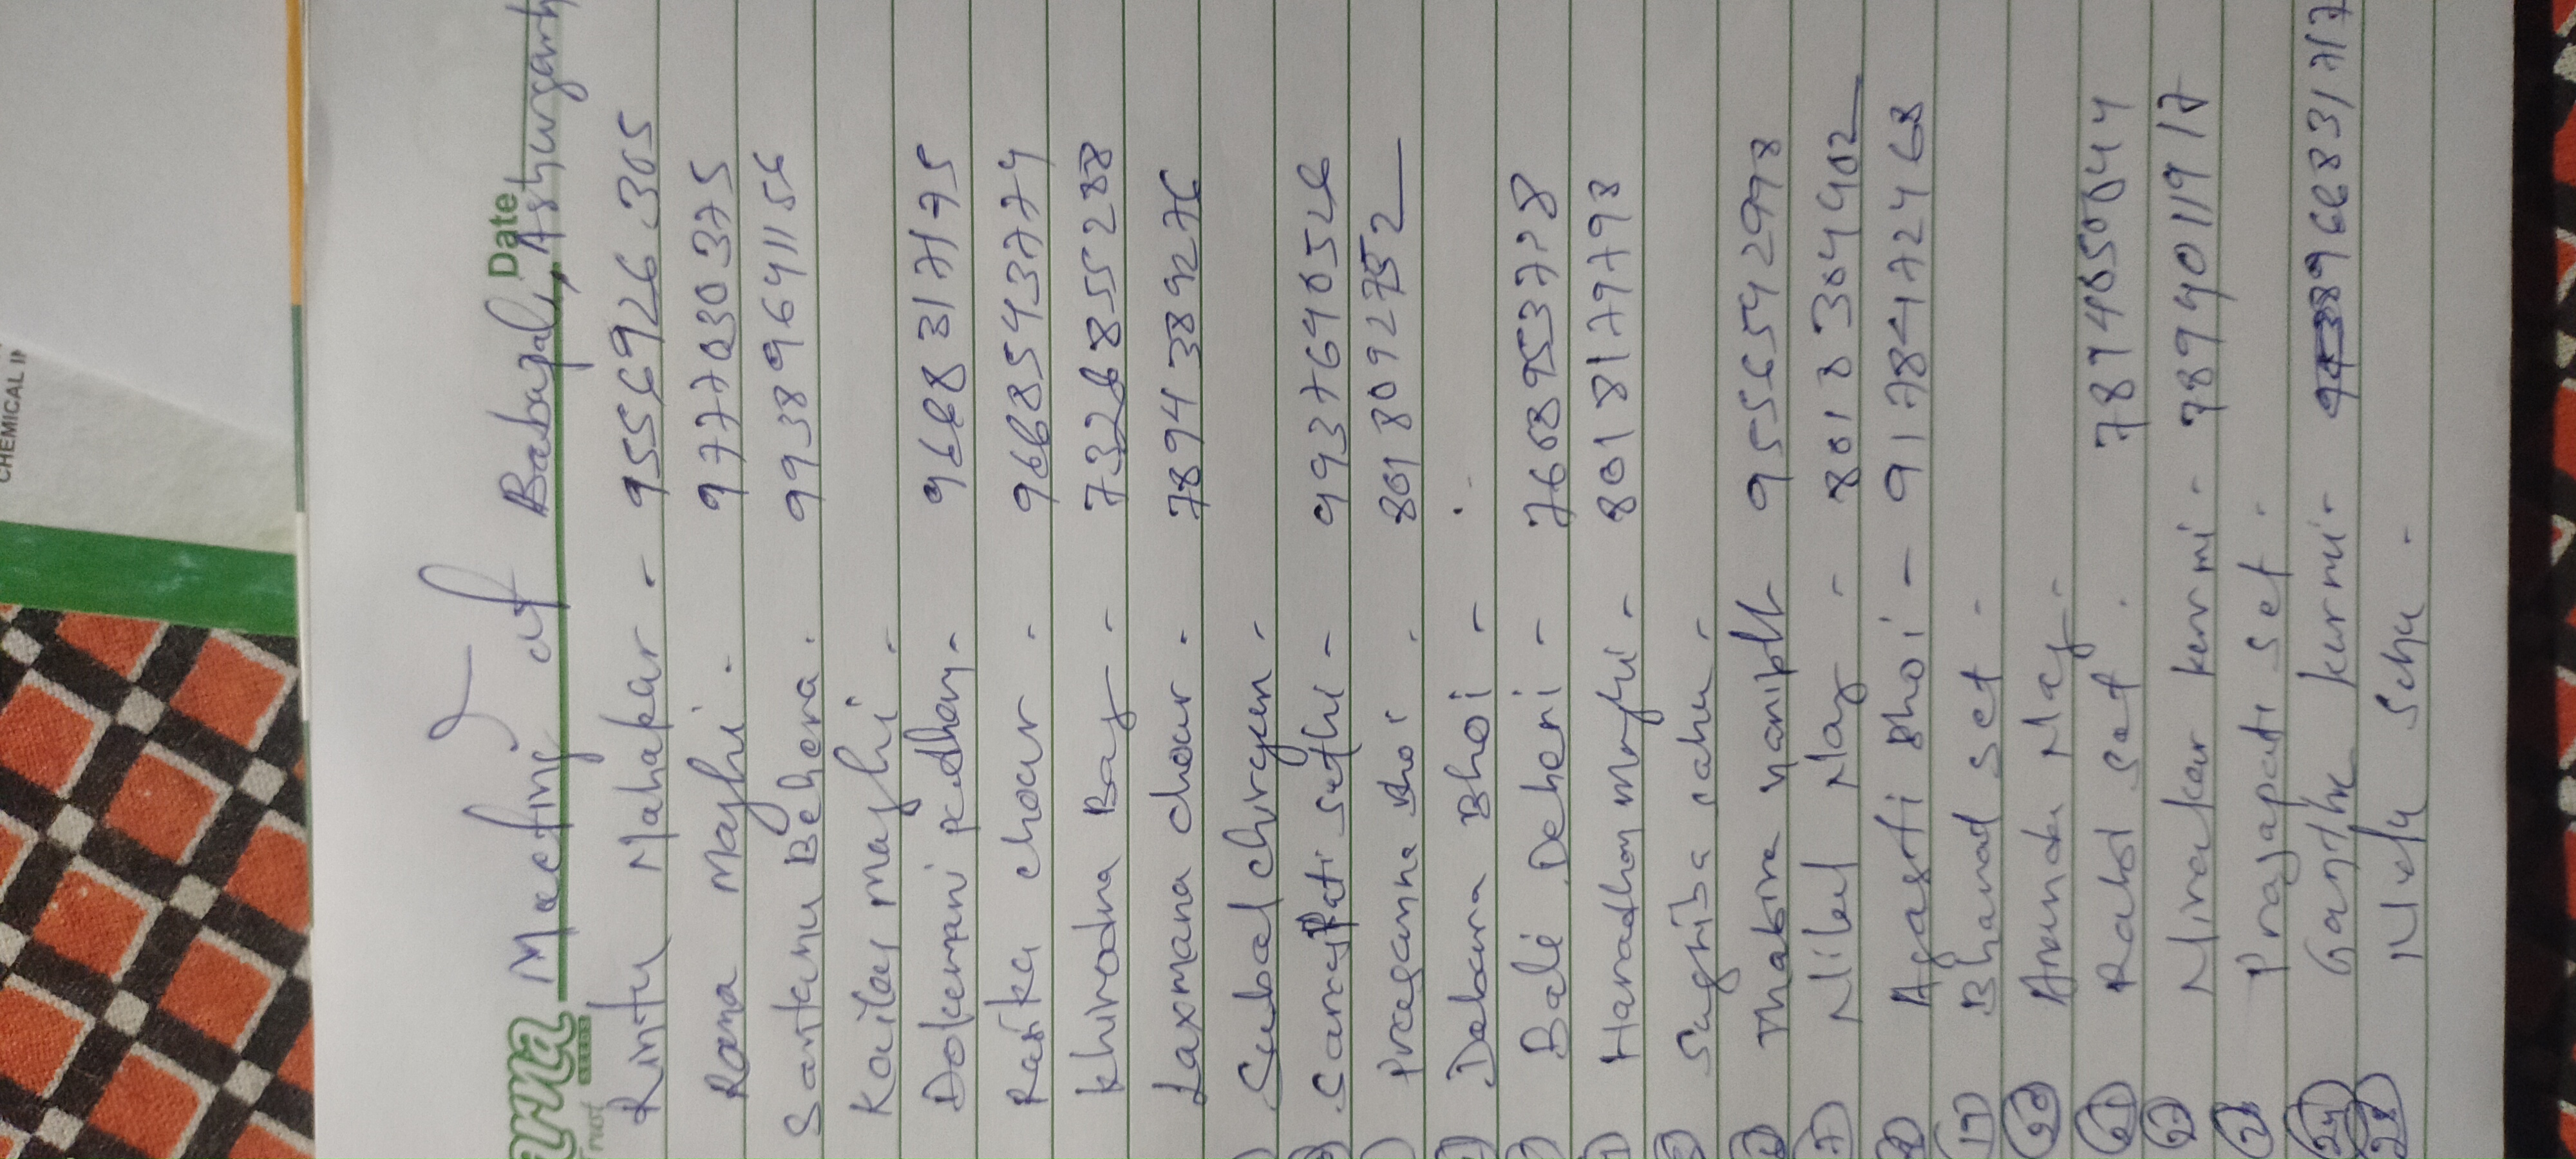 CHEMICAL IN
Date
Meeting at Babupali, Ashurgarh
Rintu Mahakur - 9556926305
Rama Majhi - 9777030375
Santanu Behera - 99389641156
Kailas majhi -
Dokemani padhan - 96688317175
Rasika chour - 9668543774
Khirodra Bag - 7326855288
Laxmana chour - 7894389276
Subal chirgun -
Sarnapati sethi - 9937640526
Pragamna Bhoi - 8018092752
Debarna Bhoi -
Bali Deheri - 7608953728
Haradhan majhi - 8018179793
Sugriba sahu -
Thabira 9556542998
(17) Nilul Nag - 8018304902
(18) Agasti Bhoi - 9178472468
(19) Bhanad set -
(20) Ananda Nag -
(21) Rabi set - 7874050044
(22) Nirakar kurmi - 7894011917
Prajapati set -
(24) kurmi - 966831717
(25)